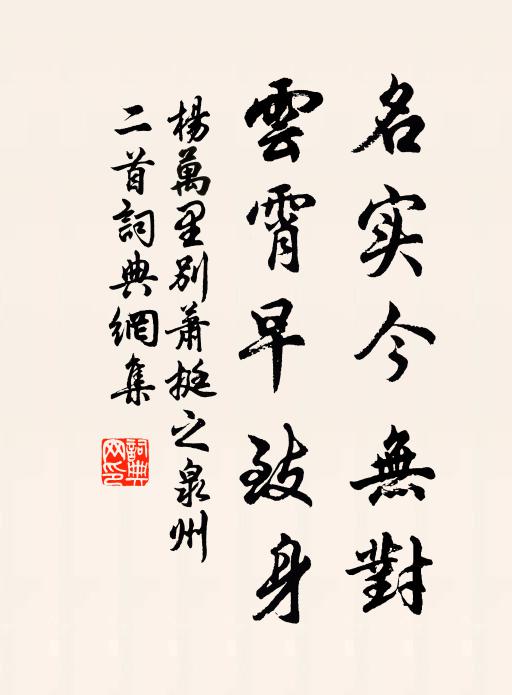 名实今無對
雲霄早致身
楊萬里别蕭挺之泉州
二首詞典網集
詞典
网印